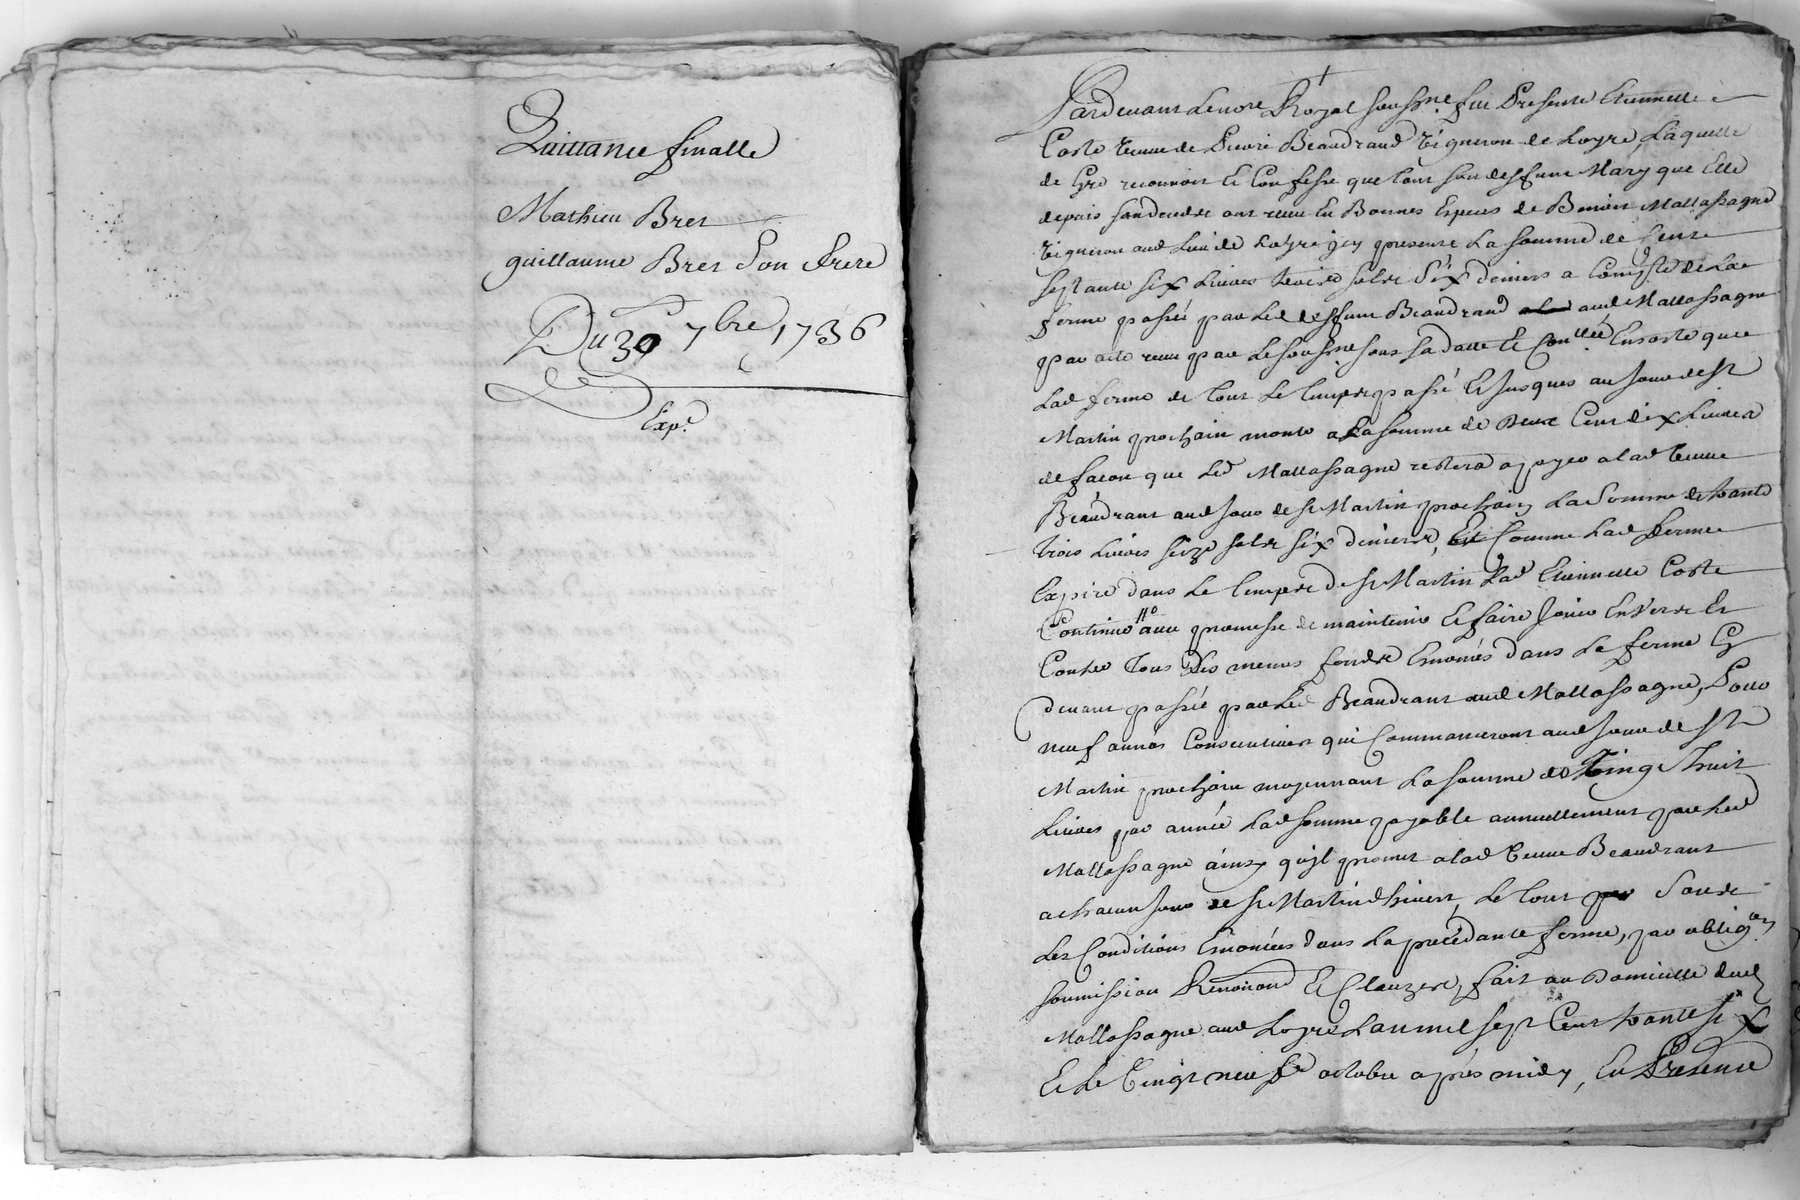 Quittance finalle
Mathieu Bret
guillaume Bret Son frere
Du 30 7bre 1736
Expé
Pardevant Le nore Royal soussné fut Presente Etiennette
Coste veuve de Pierre Beaudrand vigneron de Loyre, Laquelle
de Gré reconnoit Et Confesse que tant son deffunt Mary que Elle
depuis son deces ont receu En Bonnes Especes de Benoit Mallassagne
vigneron aud Lieu de Loyre jcy present La somme de Cent
septante six Livres treize sols Six deniers a Compte de La
ferme passée par Led deffunt Beaudrand aud Mallassagne
par acte receu par Le soussné sous sa datte Et Conllée Ensorte que
Lad ferme de tout Le temps passé Et Jusques au Jour de St
Martin prochain monte a La somme de deux Cent dix Livres
de facon que Led Mallassagne restera a payer a lad veuve
Beaudrant aud Jour de St Martin prochain La Somme de trante
trois Livres seize sols six deniers, Et Comme Lad ferme
Expire dans Le temps de St Martin Lad Etiennette Coste
Continue avec promesse de maintenir Et faire Jouir Envers Et
Contre Tous Les mesmes fonds Enoncés dans La ferme Cy
devant passée par Led Beaudrant aud Mallassagne, Pour
neuf années Consecutives qui Commanceront aud Jour de St
Martin prochain moyennant La somme de Vingt huit
Livres par année Lad somme payable annuellement par Led
Mallassagne ainsy qu'jl promet a lad veuve Beaudrant
a chacun Jour de St Martin d'hivert, Le tout Sous
Les Conditions Enoncées dans La precedante ferme, par obligon
soumission Renoond Et Clauzes, fait au Domicille dud
Mallassagne aud Loyre L'an mil sept Cent trante six
Et Le Vingt neufe octobre après midy, En Presence